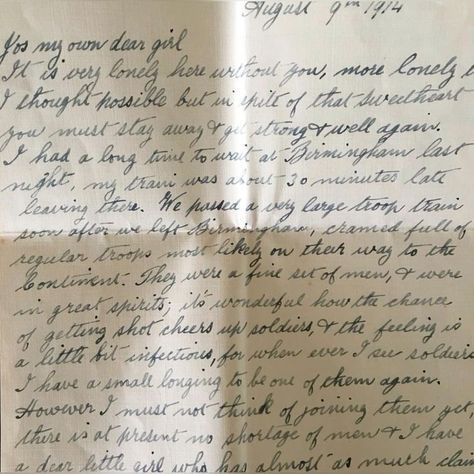 August 9th 1914
Yes my own dear girl
It is very lonely here without you, more lonely t
I thought possible but in spite of that sweetheart
you must stay away & get strong & well again.
I had a long time to wait at Bermingham last
night, my train was about 30 minutes late
leaving there. We passed a very large troop train
soon after we left Birmingham, cramed full of
regular troops most likely on their way to the
Continent. They were a fine set of men, & were
in great spirits; it's wonderful how the chance
of getting shot cheers up soldiers, & the feeling is
a little bit infectious, for when ever I see soldiers
I have a small longing to be one of them again.
However I must not think of joining them yet,
there is at present no shortage of men & I have
a dear little girl who has almost as much claim